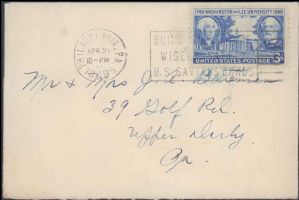 PHILADELPHIA, PA.
APR 21
10-PM
1949
BUILD
WISE
U.S. SAVINGS BONDS
1749 WASHINGTON AND LEE UNIVERSITY 1949
3¢
UNITED STATES POSTAGE
Mr & Mrs J.
39 Golf Rd.
Upper Darby
Pa.